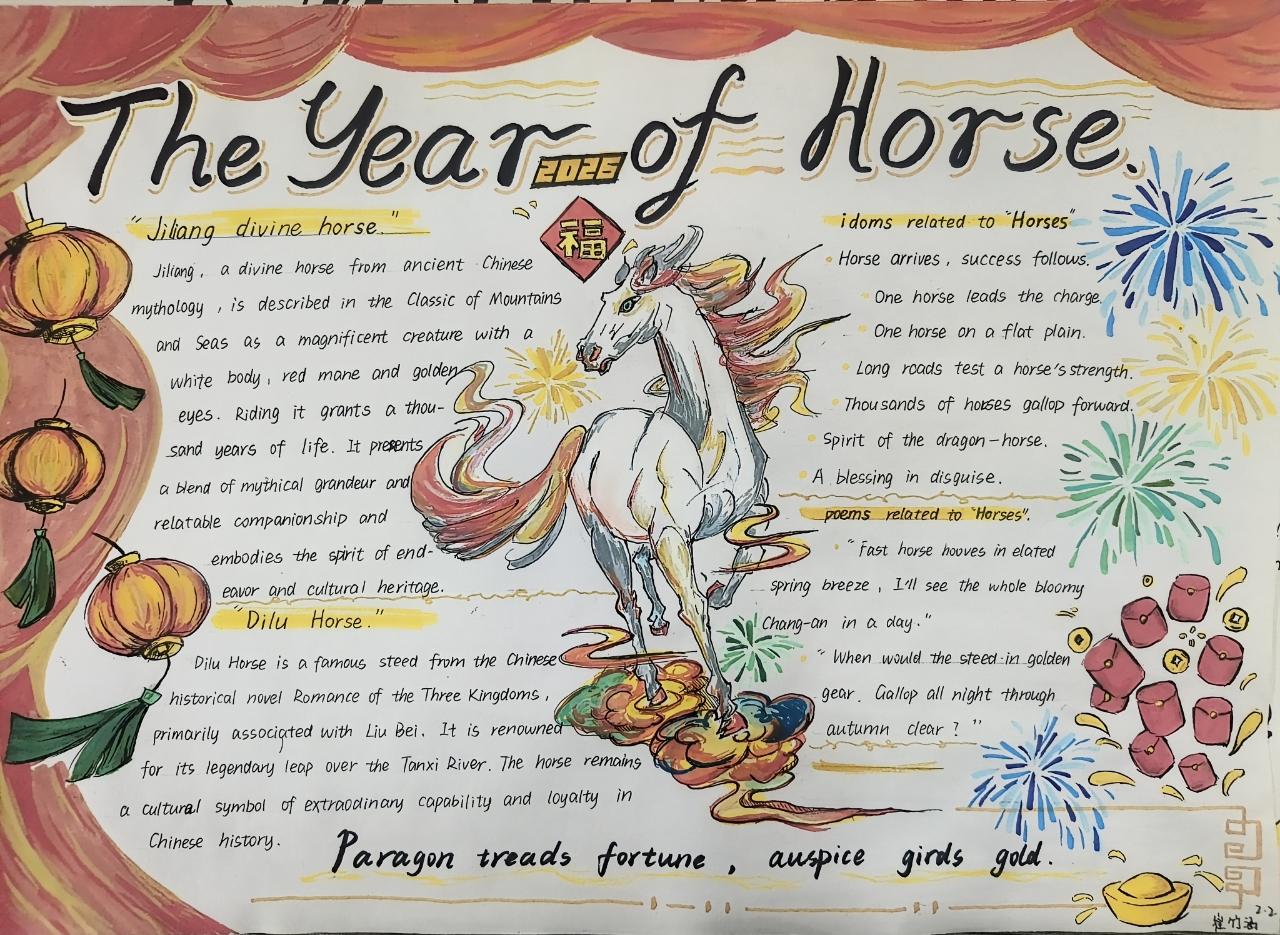 The Year of Horse.
2026
福
"Jiliang divine horse."
Jiliang, a divine horse from ancient Chinese
mythology, is described in the Classic of Mountains
and Seas as a magnificent creature with a
white body, red mane and golden
eyes. Riding it grants a thou-
sand years of life. It presents
a blend of mythical grandeur and
relatable companionship and
embodies the spirit of end-
eavor and cultural heritage.
"Dilu Horse."
Dilu Horse is a famous steed from the Chinese
historical novel Romance of the Three Kingdoms,
primarily associated with Liu Bei. It is renowned
for its legendary leap over the Tanxi River. The horse remains
a cultural symbol of extraodinary capability and loyalty in
Chinese history.
idoms related to "Horses"
Horse arrives, success follows.
One horse leads the charge.
One horse on a flat plain.
Long roads test a horse's strength.
Thousands of horses gallop forward.
Spirit of the dragon-horse.
A blessing in disguise.
poems related to "Horses".
"Fast horse hooves in elated
spring breeze, I'll see the whole bloomy
Chang-an in a day."
"When would the steed in golden
gear. Gallop all night through
autumn clear?"
Paragon treads fortune, auspice girds gold.
2.2
崔竹涵